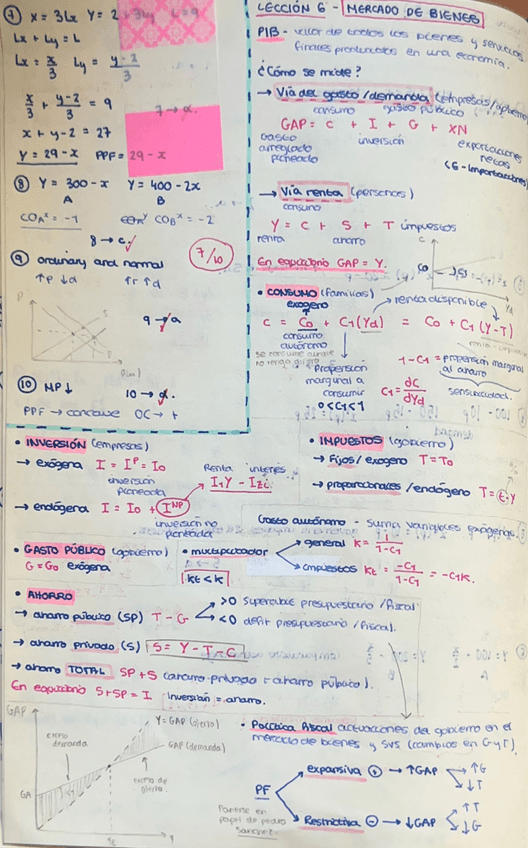 ⑦ X = 3Lx Y = 2 + 3Ly L = 9
Lx + Ly = L
Lx = x/3 Ly = y-2/3
x/3 + y-2/3 = 9
7 → α.
x + y - 2 = 27
y = 29 - x PPF = 29 - x
⑧ Y = 300 - x Y = 400 - 2x
A B
COAˣ = -1 COBˣ = -2
8 → c.
7/10
⑨ ordinary and normal
↑P ↓d ↑r ↑d
9 → a
⑩ MP↓ 10 → d.
PPF → concave OC → +
LECCIÓN 6 - MERCADO DE BIENES
PIB - valor de todos los bienes y servicios
finales producidos en una economía.
¿Cómo se mide?
→ Vía del gasto/demanda (empresas/gobierno)
consumo gasto público
GAP = C + I + G + XN
gasto agregado planeado
inversión
exportaciones netas
(G - importaciones)
→ Vía renta (personas)
consumo
Y = C + S + T impuestos
renta ahorro
En equilibrio GAP = Y.
• CONSUMO (familias)
exógeno
renta disponible
C = C0 + C1(Yd) = C0 + C1(Y-T)
consumo autónomo
se consume aunque no tenga dinero
Propensión marginal a consumir
0<C1<1
C1 = dC/dYd
1 - C1 = propensión marginal al ahorro
• INVERSIÓN (empresas)
→ exógena I = Iᴾ = I0
inversión planeada
Renta interés
I1Y - I2i
→ endógena I = I0 + Iᴺᴾ
inversión no planeada
• IMPUESTOS (gobierno)
→ Fijos/exógeno T = T0
→ proporcionales/endógeno T = t1Y
Gasto autónomo - suma variables exógenas
• GASTO PÚBLICO (gobierno)
G = G0 exógena
• multiplicador
general K = 1/1-C1
impuestos Kt = -C1/1-C1 = -C1K.
Kt < K
• AHORRO
→ ahorro público (SP) T - G
>0 Superávit presupuestario/fiscal
<0 déficit presupuestario/fiscal.
→ ahorro privado (S) S = Y - T - C
→ ahorro TOTAL SP + S (ahorro privado + ahorro público).
En equilibrio S + SP = I Inversión = ahorro.
GAP
Y = GAP (oferta)
exceso demanda
GAP (demanda)
exceso de oferta
GA
• Política fiscal actuaciones del gobierno en el
mercado de bienes y svs (cambios en G y T)
PF
expansiva ⊕ → ↑GAP ↑G ↓T
Restrictiva ⊖ → ↓GAP ↑T ↓G
Ponerse en papel de pedro sanchez